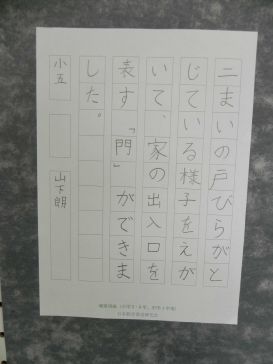 二まいの戸びらがと
じている様子をえが
いて、家の出入口を
表す「門」ができま
した。
小五
山下朗